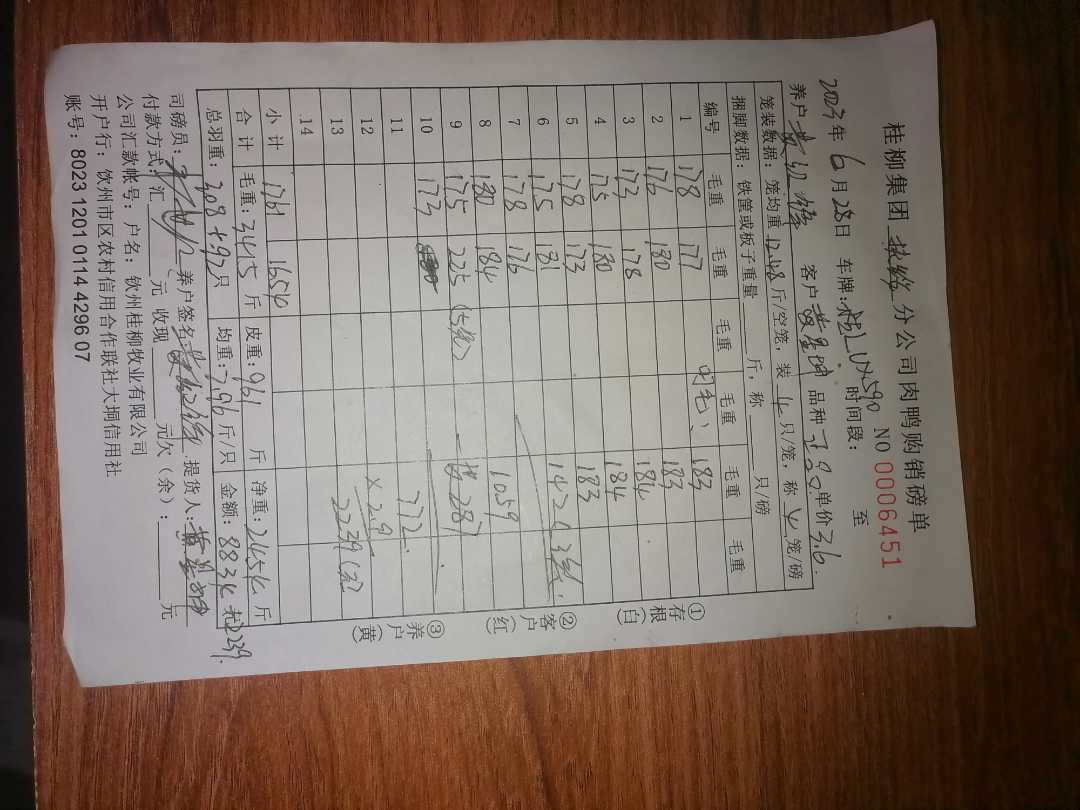 桂柳集团 分公司肉鸭购销磅单
NO 0006451
2023年6月28日 车牌:桂LUX590 时间段: 至
养户 黄 客户 黄星坤 品种 单价3.6
笼装数据: 笼均重12.48斤/空笼, 装4只/笼, 称 笼/磅
捆脚数据: 铁筐或板子重量 斤, 称 只/磅
编号 毛重 毛重 毛重 毛重 毛重 毛重
1 178 177 (毛) 183
2 176 180 183
3 173 178 184
4 175 180 184
5 178 173 183
6 175 181 142
7 178 176 1059
8 180 184
9 175 225 (5笼) 287
10 173 772
11
12 ×2.9
13 2239(元)
14
小计 1761 1654
合计 毛重:3415斤 皮重:961斤 净重:2454斤
总羽重:308+92只 均重:7.96斤/只 金额:8834 2239.
司磅员: 养户签名 提货人:黄星坤
付款方式: 汇 元 收现 元欠(余): 元
公司汇款帐号: 户名: 钦州桂柳牧业有限公司
开户行: 钦州市区农村信用合作联社大垌信用社
账号: 8023 1201 0114 4296 07
①存根(白)
②客户(红)
③养户(黄)